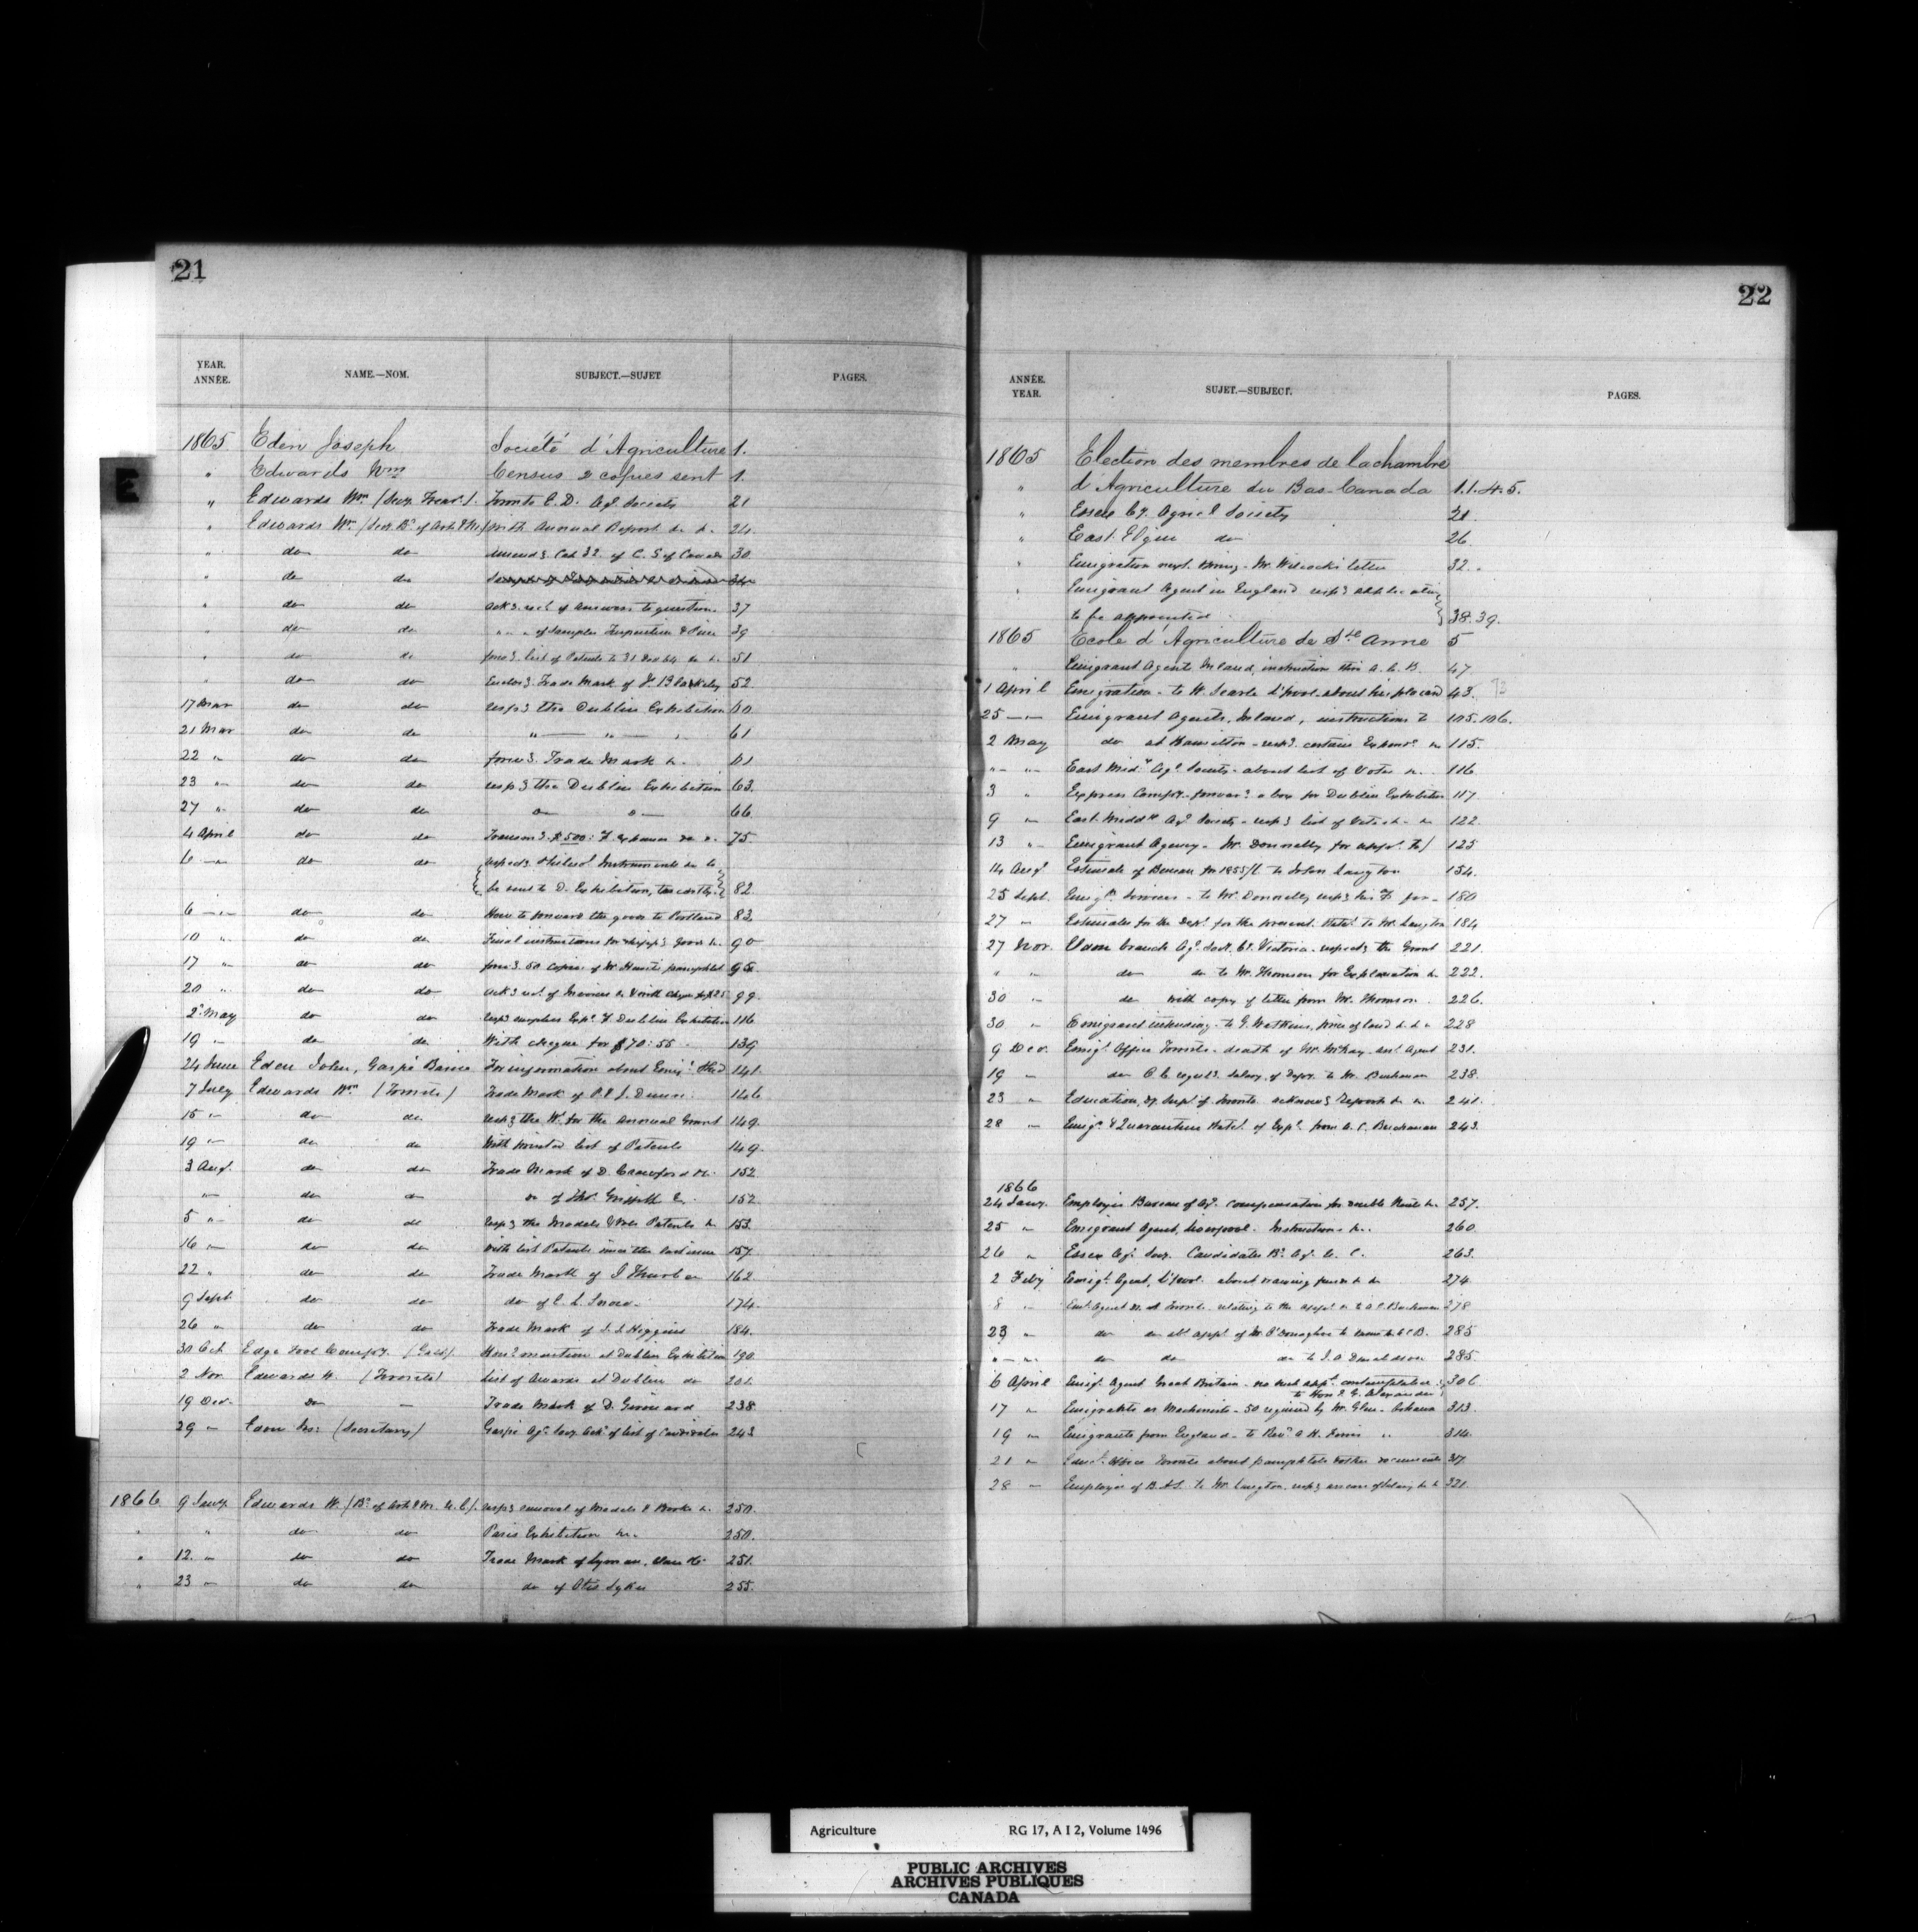 21
YEAR. ANNÉE. NAME.—NOM. SUBJECT.—SUJET PAGES.
1865 Eden Joseph Société d'Agriculture 1.
" Edwards Wm Census 2 copies sent 1.
" Edwards Wm (Secy. Treasr.) Toronto E.D. Agl. Society 21
" Edwards Wm (Secy. Bd. of Arts & M.) with Annual Report &c &c 24
" do do Cap 32 of C. S. of Canada 30
" do do
" do do ackg. rect. of answers to question 37
" do do " " of samples 39
" do do forwg. list of Patents to 31 Dec 64 &c &c 51
" do do Enclosg. Trade Mark of J. Blackley 52
17 Mar do do respg the Dublin Exhibition 60
21 Mar do do " " " 61
22 " do do forwg. Trade Mark &c. 61
23 " do do respg the Dublin Exhibition 63.
27 " do do do do 66
4 April do do $500 75.
6 " do do Instruments &c to
be sent to D. Exhibition, 82.
6 " do do How to forward the goods to Portland 83.
10 " do do Final instructions for shippg goods &c. 90
17 " do do forwg. 50 copies of Mr Hunt's pamphlet 95.
20 " do do ackg rect. of Invoices & with cheque for $25 99.
2 May do do Dublin Exhibition 116
19 " do do With cheque for $70:55 139
24 June Eden John, Gaspé Basin For information about Emigt. Shed 141.
7 July Edwards Wm (Toronto) Trade Mark of P. & J. Dunn 146
15 " do do respg the Wt. for the annual Grant 149.
19 " do do With printed list of Patents 149.
3 Augt. do do Trade Mark of D. Crawford &c. 152
" do do do of Thos. Griffith & 152
5 " do do respg the Models & Patents &c 153.
16 " do do with list Patents since the last issue 157.
22 " do do Trade Mark of I Thurber 162.
9 Sept. do do do of C. L. Snow. 174.
26 " do do Trade Mark of J. J. Higgins 184.
30 Oct Edge Tool Company. (Galt). Honl mention at Dublin Exhibition 190.
2 Nov. Edwards W. (Toronto) List of Awards at Dublin do 201.
19 Dec. do " Trade Mark of D. Girouard 238
29 " Eden Jos: (Secretary) Gaspé Agl. Socy. ackg. of list of Candidates 243
1866 9 Jany. Edwards W. (Bd. of Arts & M. U. C.). respg removal of Models & Books &c. 250.
" " do do Paris Exhibition &c. 250.
" 12. " do do Trade Mark of Lyman, Clare & Co 251.
" 23 " do do do of Otis Sykes 255.
22
ANNÉE. YEAR. SUJET.—SUBJECT. PAGES.
1865 Election des membres de la chambre
" d'Agriculture du Bas-Canada 1.1.4.5.
" Essex Cy. Agricl Society 21.
" East Elgin do 26
" Emigration Mr. Wilcock's letter 32.
" Emigrant Agent in England respg
to be appointed 38.39.
1865 Ecole d'Agriculture de Ste Anne 5
" Emigrant Agents Inland, instruction thro A. C. B. 47.
1 April Emigration - to W. Searle L'pool - about his 43.
25 " Emigrant Agents, Inland, instructions to 105.106.
2 May do at Hamilton - respg. certain Expend. &c 115.
" " East Midx. Agl. Society - about list of Votes &c. 116
3 " Express Compy. - forwardg a box for Dublin Exhibition 117.
9 " East Middx. Agl. Society - respg list of Votes &c &c 122.
13 " Emigrant Agency - Mr. Donnelly for 125
14 Augt. Estimate of Bureau for 1855/6 to John Langton 154.
25 Sept. Emigt. Services - to Mr. Donnelly respg his 180
27 " Estimates for the Dept. for the present Statet. to Mr. Langton 184
27 Nov. Eldon branch Agl. Soct. Ct. Victoria - respectg the Grant 221.
" " do do to Mr. Thomson for Explanation &c 222.
30 " do with copy of letter from Mr. Thomson. 226.
30 " Emigrant intending - to G. Watkins, price of land &c &c 228
9 Dec. Emigt. Office Toronto - death of Mr. McKay - asst. Agent 231.
19 " do salary of Depy. to Mr. Buchanan 238.
23 " Education, Dept. of Toronto acknowg Reports &c &c 241.
28 " Emign. & Quarantine Statet. of Expt. from A. C. Buchanan 243.
1866
24 Jany. Employés Bureau of Agl. compensation for double Rent &c. 257.
25 " Emigrant Agent, Liverpool - Instructions &c. 260.
26 " Essex Agl. Socy. Candidates Bd. Agl. U. C. 263.
2 Feby Emigt. Agent, L'pool. about &c &c 274.
8 " Emt. Agent at Toronto relating to the appt. A. C. Buchanan 278
23 " do appt. of Mr. O'Donaghue to same A. C. B. 285
" " do do do to J. A. Donaldson 285.
6 April Emigt. Agent Great Britain - no such appt. contemplated 306
to Honl. G. Alexander
17 " Emigrants as Machinists - 50 required by Mr. Glen - Oshawa 313.
19 " Emigrants from England - to Revd. A. H. " 314.
21 " Educ. Office Toronto about pamphlets & other documents 317.
28 " Employés of B.A.S. to Mr. Langton respg &c 321.
Agriculture RG 17, A I 2, Volume 1496
PUBLIC ARCHIVES
ARCHIVES PUBLIQUES
CANADA